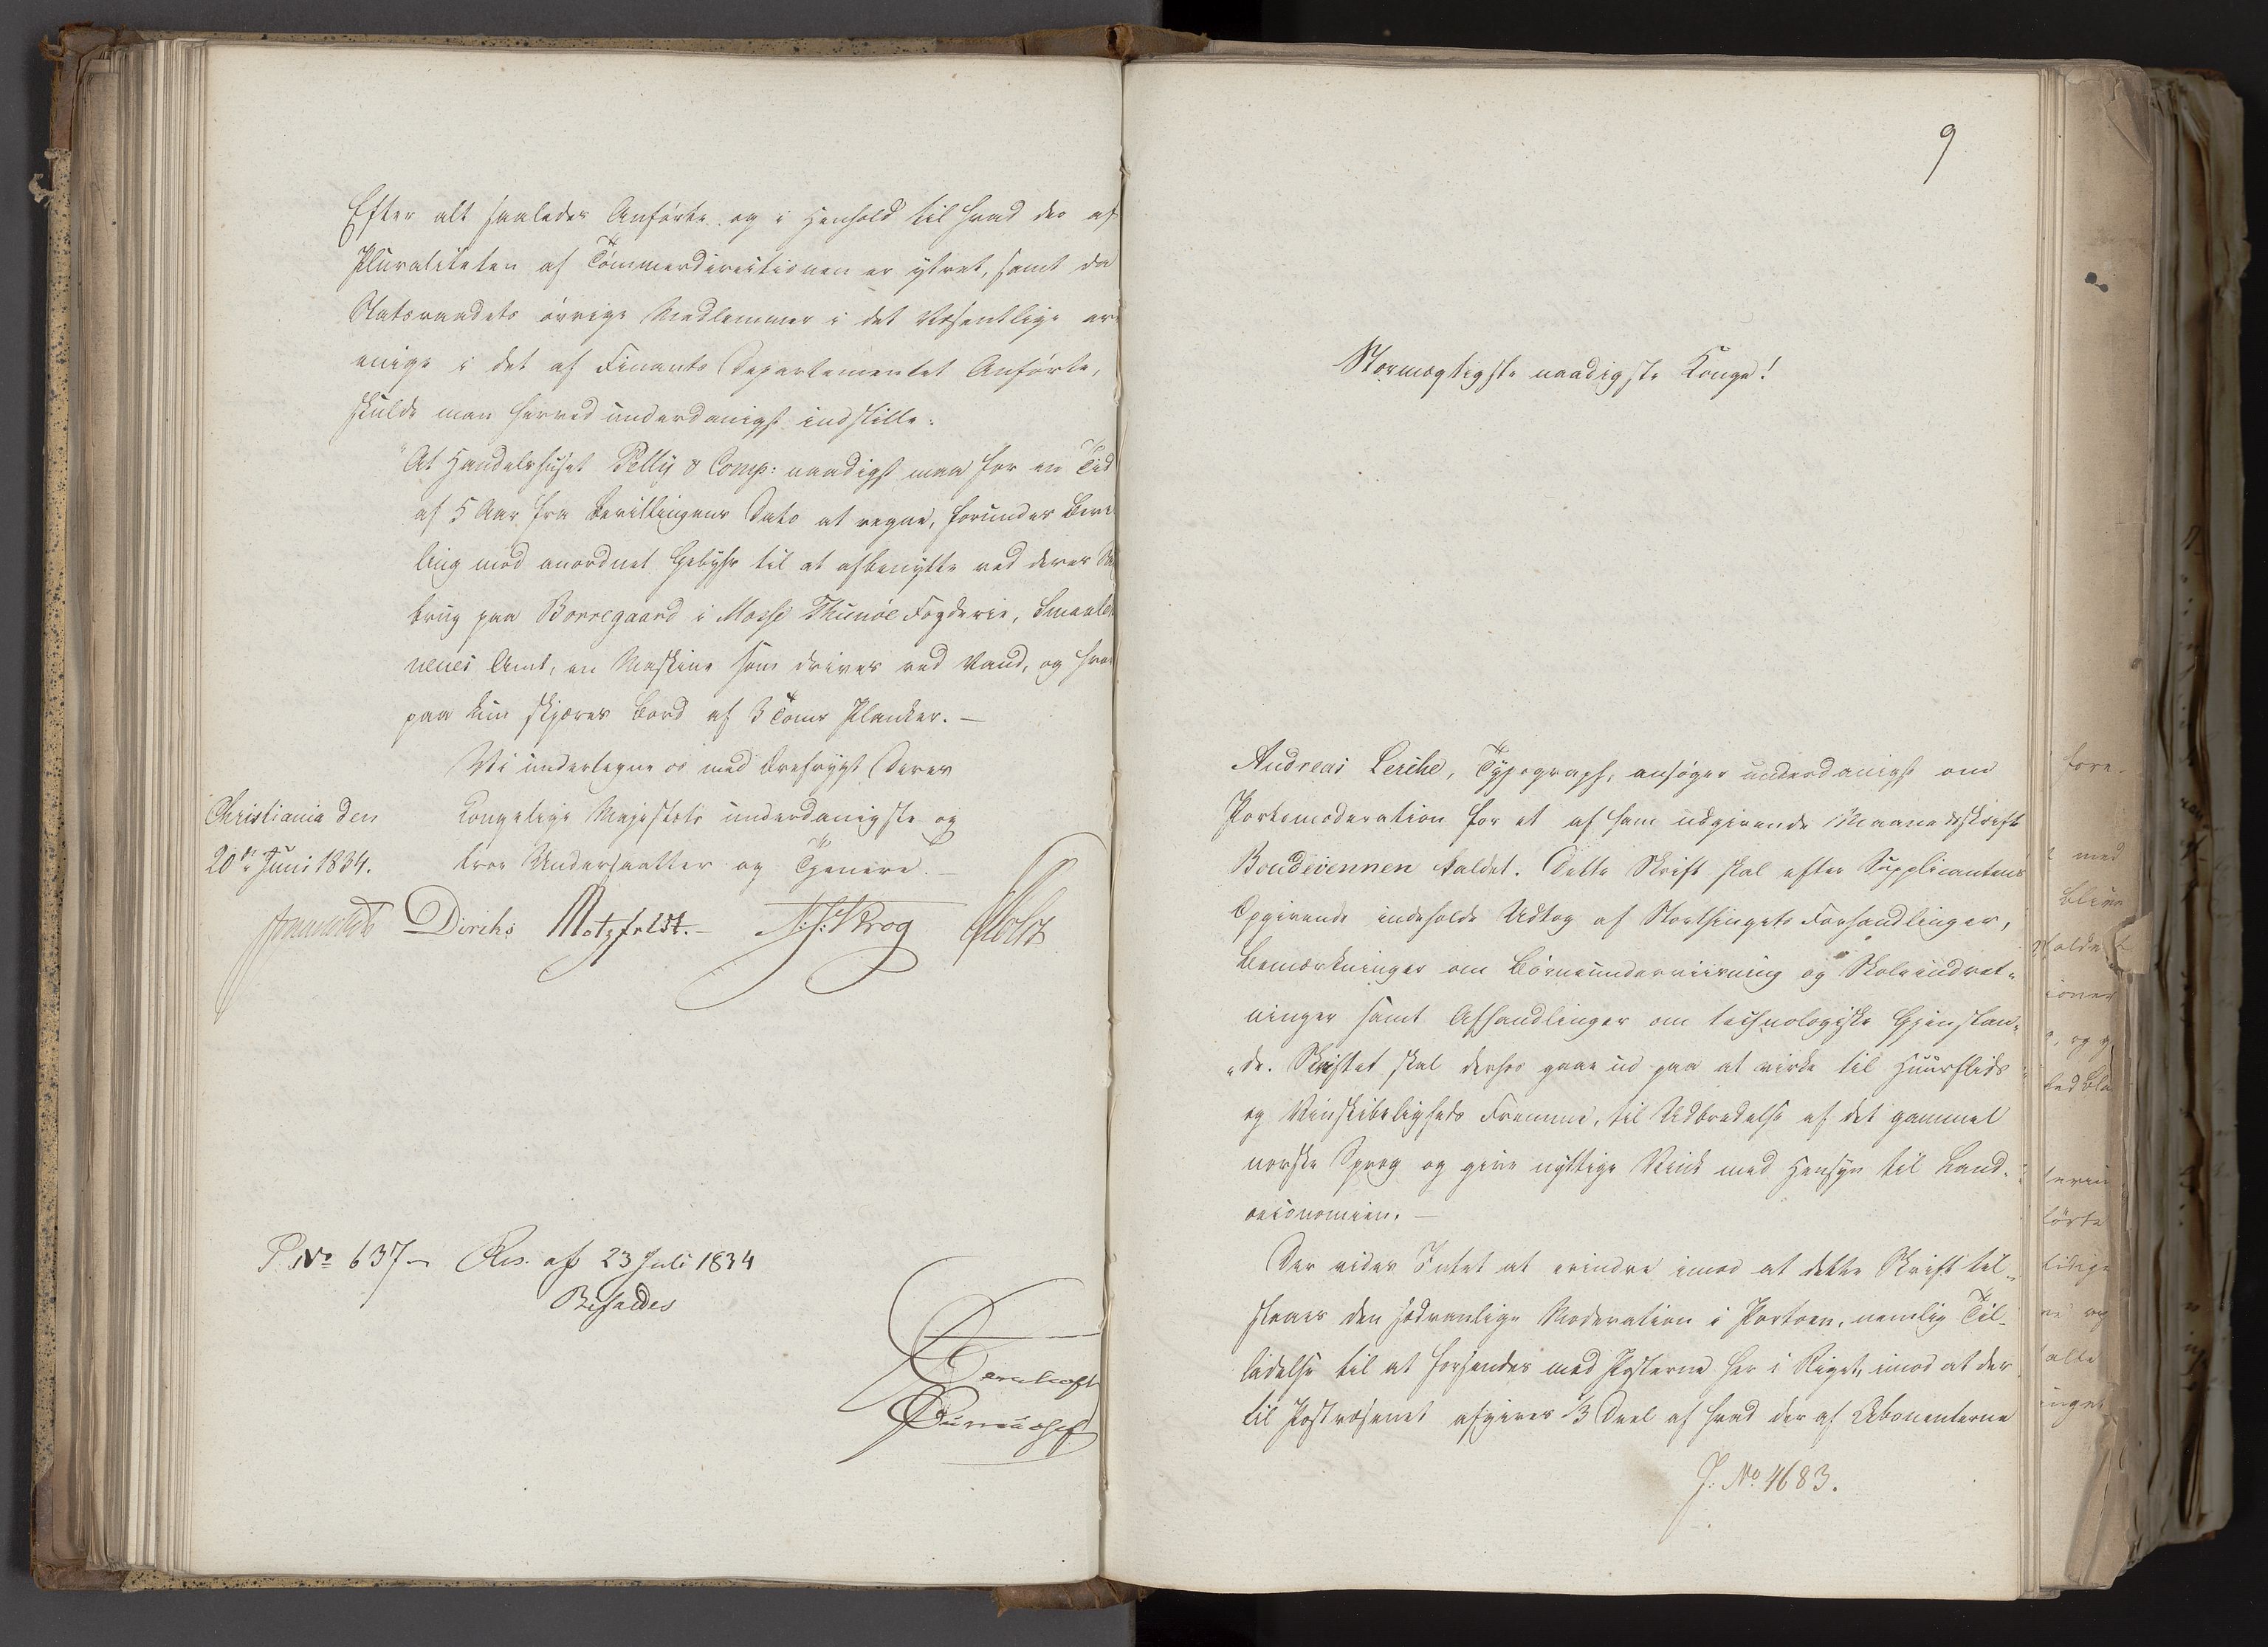 Efter alt saaledes Anførte og i Henhold til hvad der af
Pluraliteten af Tømmerdirectionen er ytret, samt da
Statsraadets øvrige Medlemmer i det Væsentlige ere
enige i det af Finants Departementet Anførte,
skulde man herved underdanigst indstille:
"At Handelshuset Pelly & Comp: naadigst maa for en Tid
af 5 Aar fra Bevillingens Dato at regne, forundes Bevil
ling mod anordnet Gebyhr til at afbenytte ved deres
brug paa Borregaard i Mosse Thunøe Fogderie, Smaaleh
nenes Amt, en Maskine som drives ved Vand, og hvor
paa kun skjæres Bord af 3 Toms Planker. —
Vi undertegne os med Ærefrygt Deres
Christiania den
Kongelige Majestæts underdanigste og
20de Juni 1834.
troe Undersaatter og Tjenere. —
Diriks Motzfeldt. N. J. Krog Holst
P. No 637 — Res. af 23 Juli 1834
Bifaldes
9
Stormægtigste naadigste Konge!
Andreas Lerche, Typograph, ansøger underdanigst om
Portomoderation for et af ham udgivende Maanedsskrift
Bondevennen kaldet. Dette Skrift skal efter Supplicantens
Opgivende indeholde Udtog af Storthingets Forhandlinger,
Bemærkninger om Børneunderviisning og Skoleindret-
ninger samt Afhandlinger om technologiske Gjenstan-
"de. Skriftet skal derhos gaae ud paa at virke til Huusflids
og Vinskibeligheds Fremme, til Udbredelse af det gammel
norske Sprog og give nyttige Vink med Hensyn til Land-
oeconomien. —
Der vides Intet at erindre imod at dette Skrift til-
staaes den sædvanlige Moderation i Portoen, nemlig Til-
ladelse til at forsendes med Posterne her i Riget, imod at der
til Postvæsenet afgives 1/3 Deel af hvad der af Abonenterne
J. No 4683.